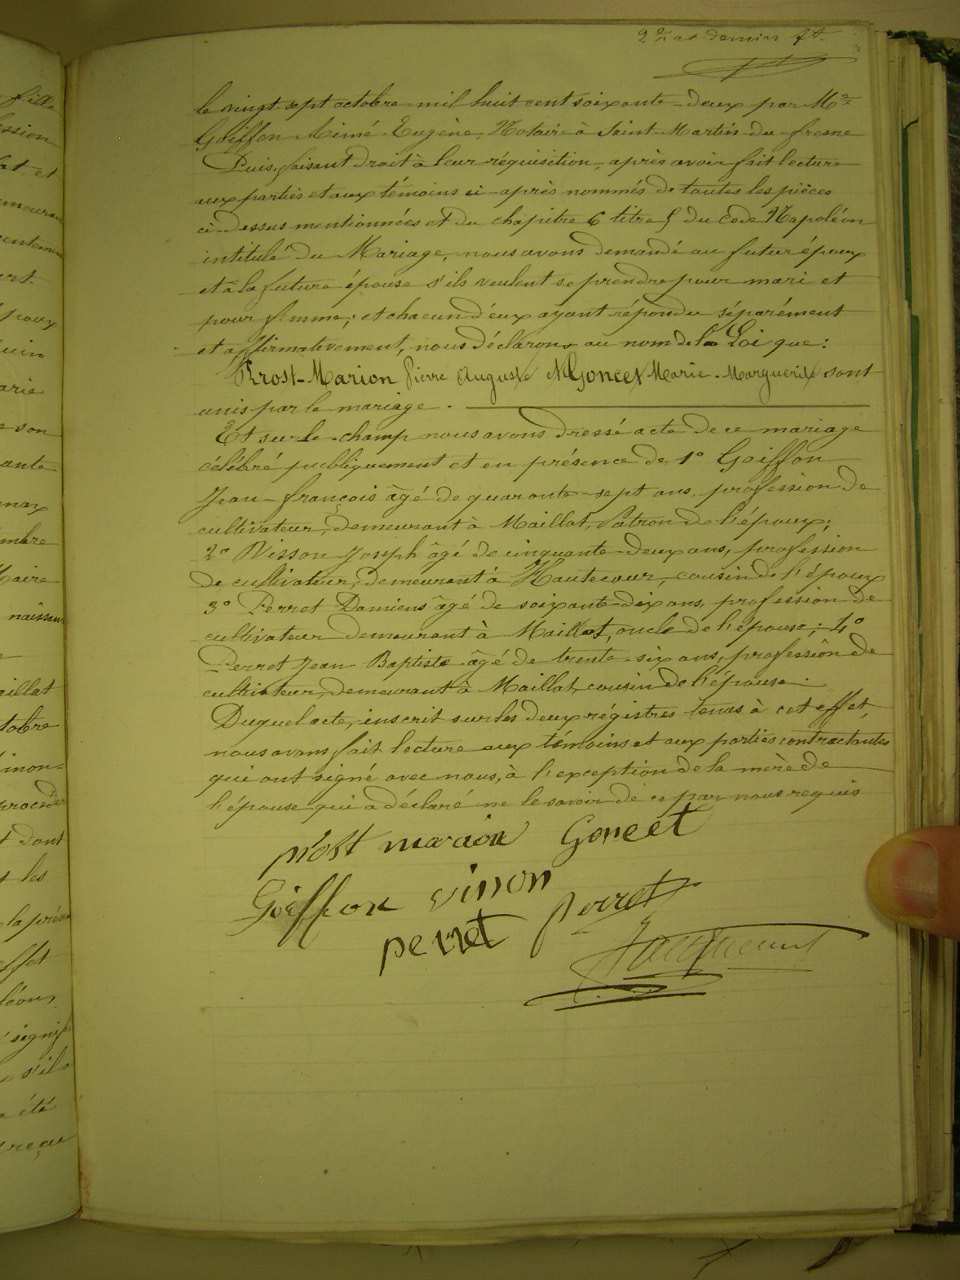 fille
ession
at et
ert
époux
arie
e son
ante
embre
Maire
naissan
aillat
tobre
t dont
t les
la prés
effet
léon
signif
s'ils
été
reçu
2 et dernier ft.
le vingt sept octobre mil huit cent soixante-deux par Me
Goiffon Aimé-Eugène, Notaire à Saint-Martin-du-fresne
Puis, faisant droit à leur réquisition, après avoir fait lecture
aux parties et aux témoins ci-après nommés de toutes les pièces
ci-dessus mentionnées et du chapitre 6 titre 5 du code Napoléon
intitulé du Mariage, nous avons demandé au futur époux
et à la future épouse s'ils veulent se prendre pour mari et
pour femme; et chacun d'eux ayant répondu séparément
et affirmativement, nous déclarons au nom de la Loi que:
Prost-Marion Pierre Auguste et Goncet Marie-Marguerite sont
unis par le mariage.
Et sur le champ nous avons dressé acte de ce mariage
célébré publiquement et en présence de 1° Goiffon
Jean-françois âgé de quarante-sept ans, profession de
cultivateur, demeurant à Maillat, Patron de l'époux;
2° Visson Joseph âgé de cinquante-deux ans, profession
de cultivateur, demeurant à Hautecour, cousin de l'époux
3° Perret Damiens âgé de soixante-dix ans, profession de
cultivateur demeurant à Maillat, oncle de l'épouse; 4°
Perret Jean Baptiste âgé de trente-six ans, profession de
cultivateur, demeurant à Maillat, cousin de l'épouse.
Duquel acte, inscrit sur les deux régistres tenus à cet effet,
nous avons fait lecture aux témoins et aux parties contractantes
qui ont signé avec nous, à l'exception de la mère de
l'épouse qui a déclaré ne le savoir de ce par nous requis
prost marion Goncet
Goiffon vinon
perret Perret